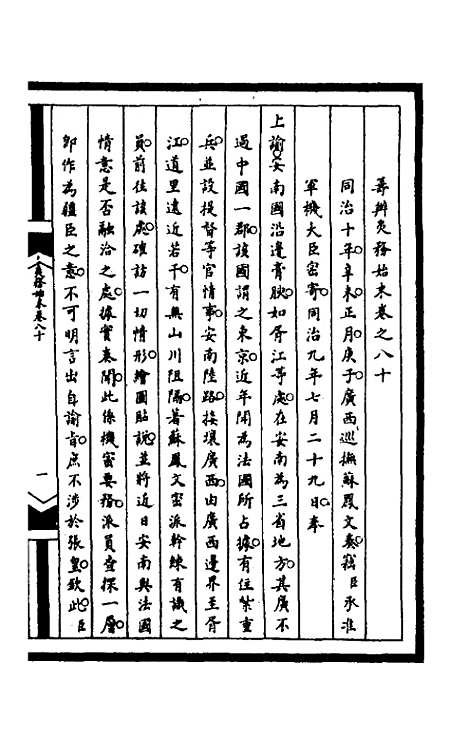 籌辦夷務始末卷之八十
同治十年辛未正月庚子。廣西巡撫蘇鳳文奏。竊臣承准
軍機大臣密寄。同治九年七月二十九日。奉
上諭。安南國沿邊膏腴。如胥江等處。在安南為三省地方。其廣不
過中國一郡。該國謂之東京。近年聞為法國所占據。有住紮重
兵。並設提督等官情事。安南陸路。接壤廣西。由廣西邊界至胥
江。道里遠近若干。有無山川阻隔。著蘇鳳文密派幹練有識之
員。前往該處。確訪一切情形。繪圖貼說。並將近日安南與法國
情意是否融洽之處。據實奏聞。此係機密要務。派員查探一層。
卽作為疆臣之意。不可明言出自諭旨。庶不涉於張皇。欽此。臣
夷務始末卷八十
一